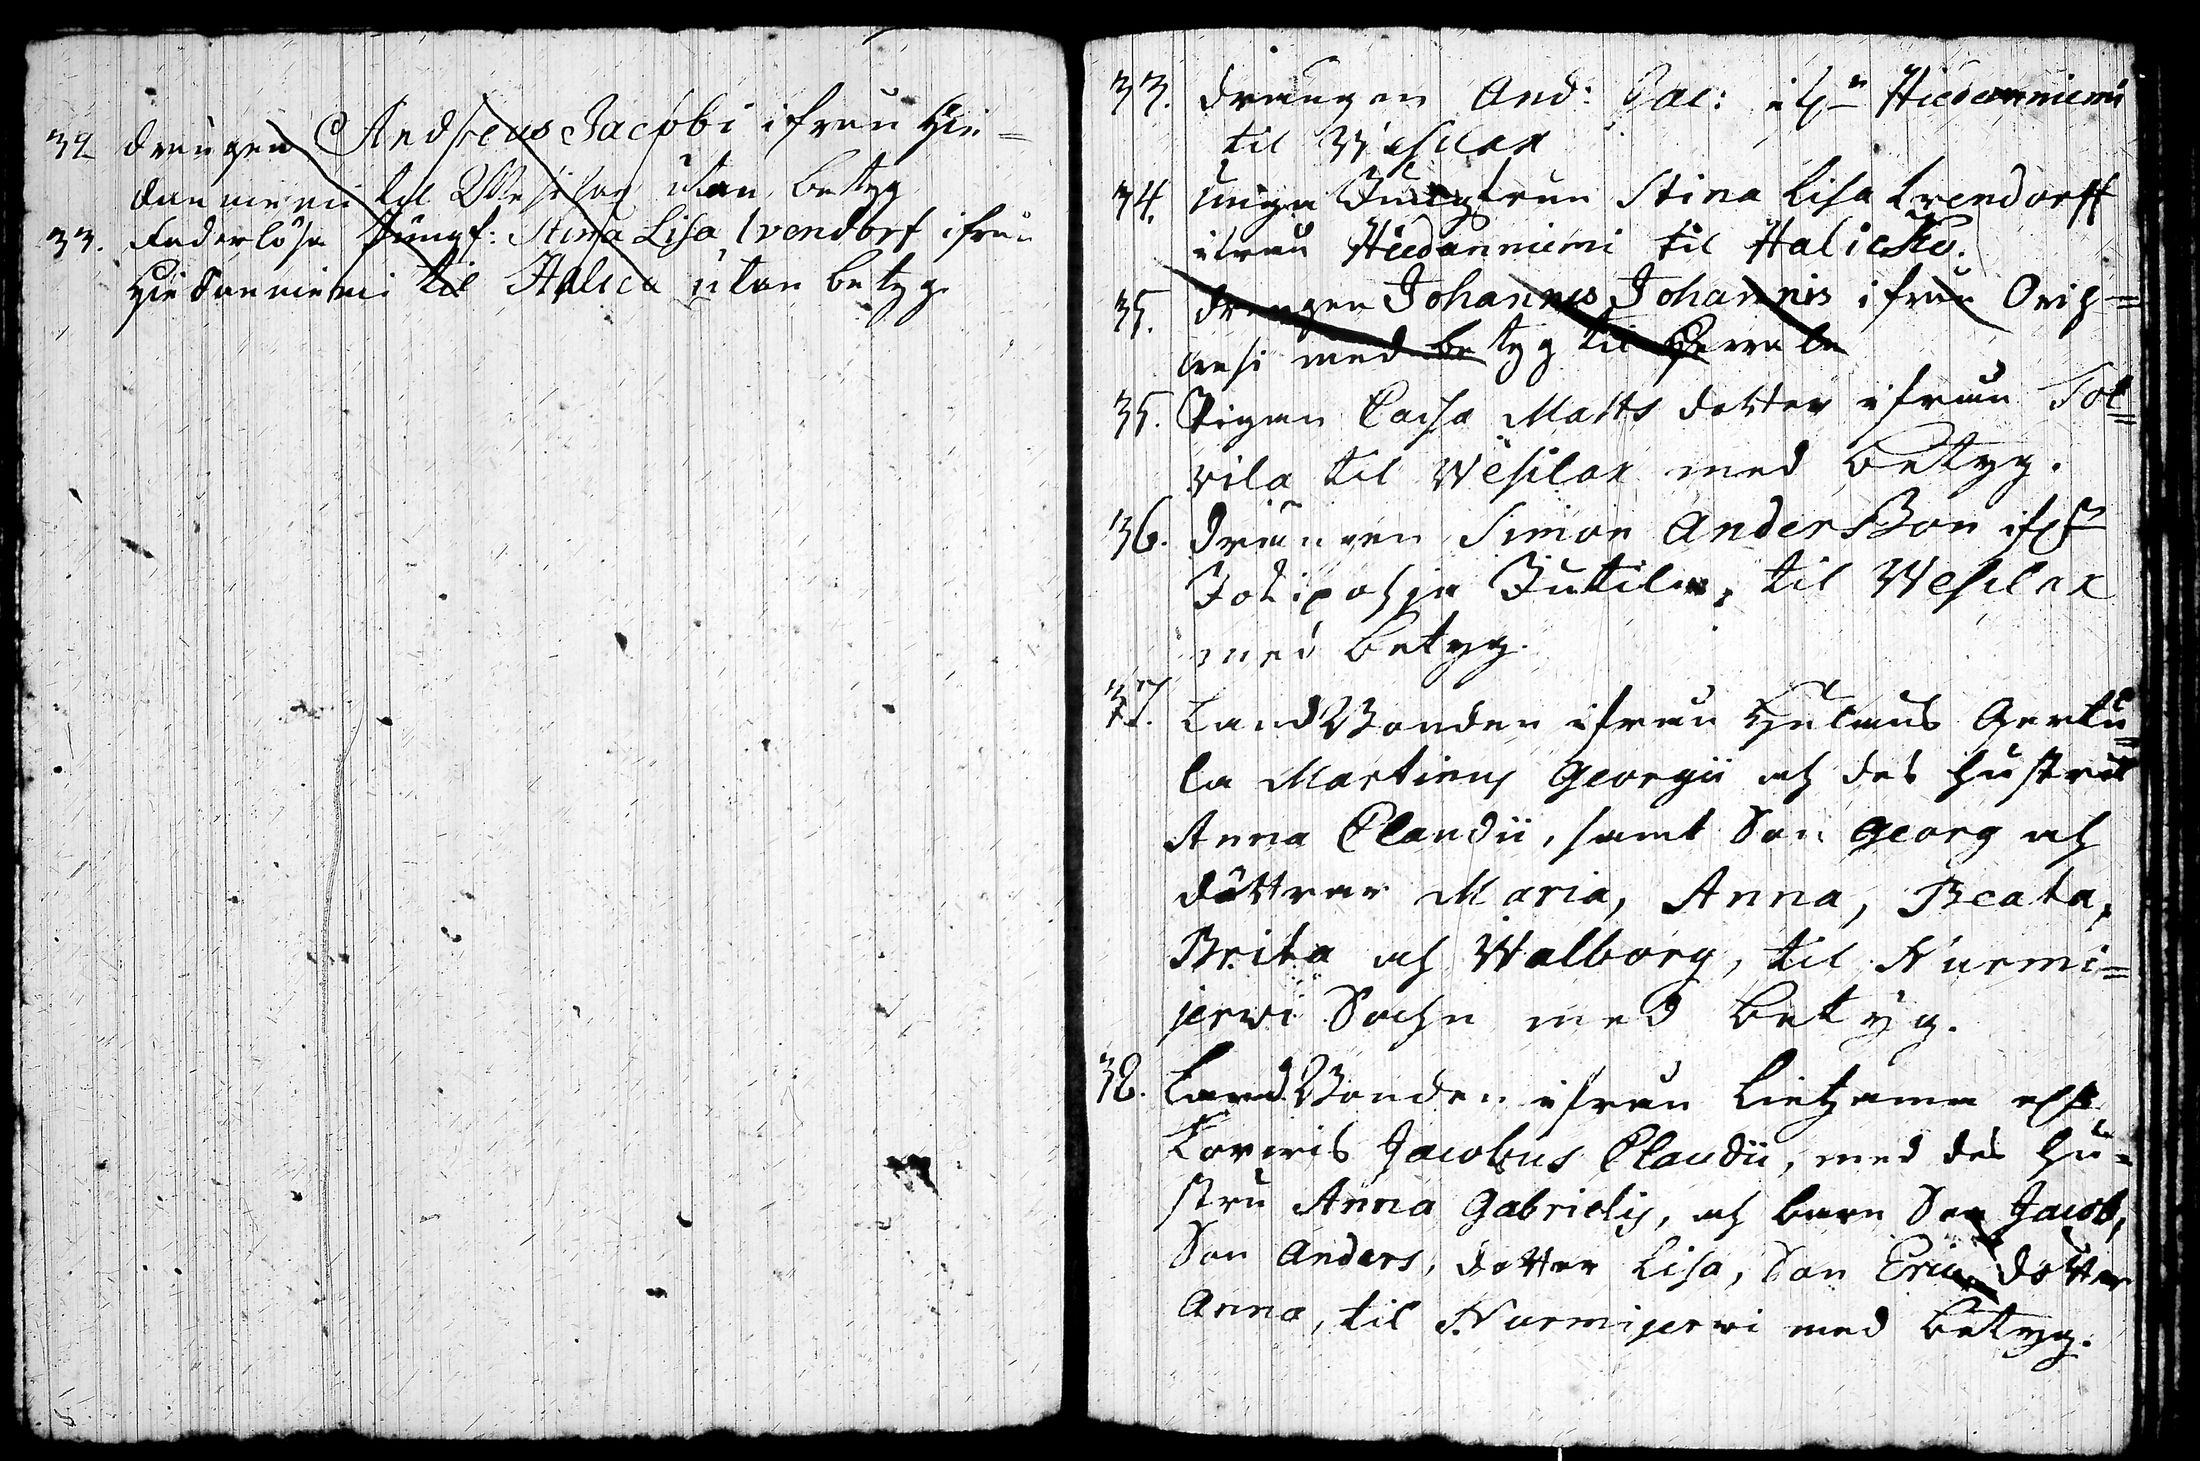 32 drängen Andreas Jacobi ifrån Hie=
danniemi til Wesilax utan betyg
33. Faderlösa Jungf: Stina Lisa Trendorf ifrån
Hiedanniemi til Halico utan betyg
33. drängen And: Jac: Hiedanniemi
til Wesilax
34. unga Jungfrun Stina Lisa Trendorff
ifrån Hiedanniemi til Halicko.
35. drängen Johannes Johannis ifrån Orih=
wesi med betyg til
35. Pigan Caisa Matts dotter ifrån Tot=
vila til Wesilax med betyg.
36. Drängen Simon Andersson
Jutila, til Wesilax
med betyg.
37. LandBonden ifrån Hulaus Gertu=
la Martinus Georgii och des hustru
Anna Claudii, samt Son Georg och
döttrar Maria, Anna, Beata,
Brita och Walborg, til Nurmi=
jerwi Sochn med betyg.
38. LandBonden ifrån
Jacobus Claudii, med des hu=
stru Anna Gabrielis, och barn Son Jacob,
Son Anders, dotter Lisa, Son Eric, dotter
Anna, til Nurmijerwi med betyg.